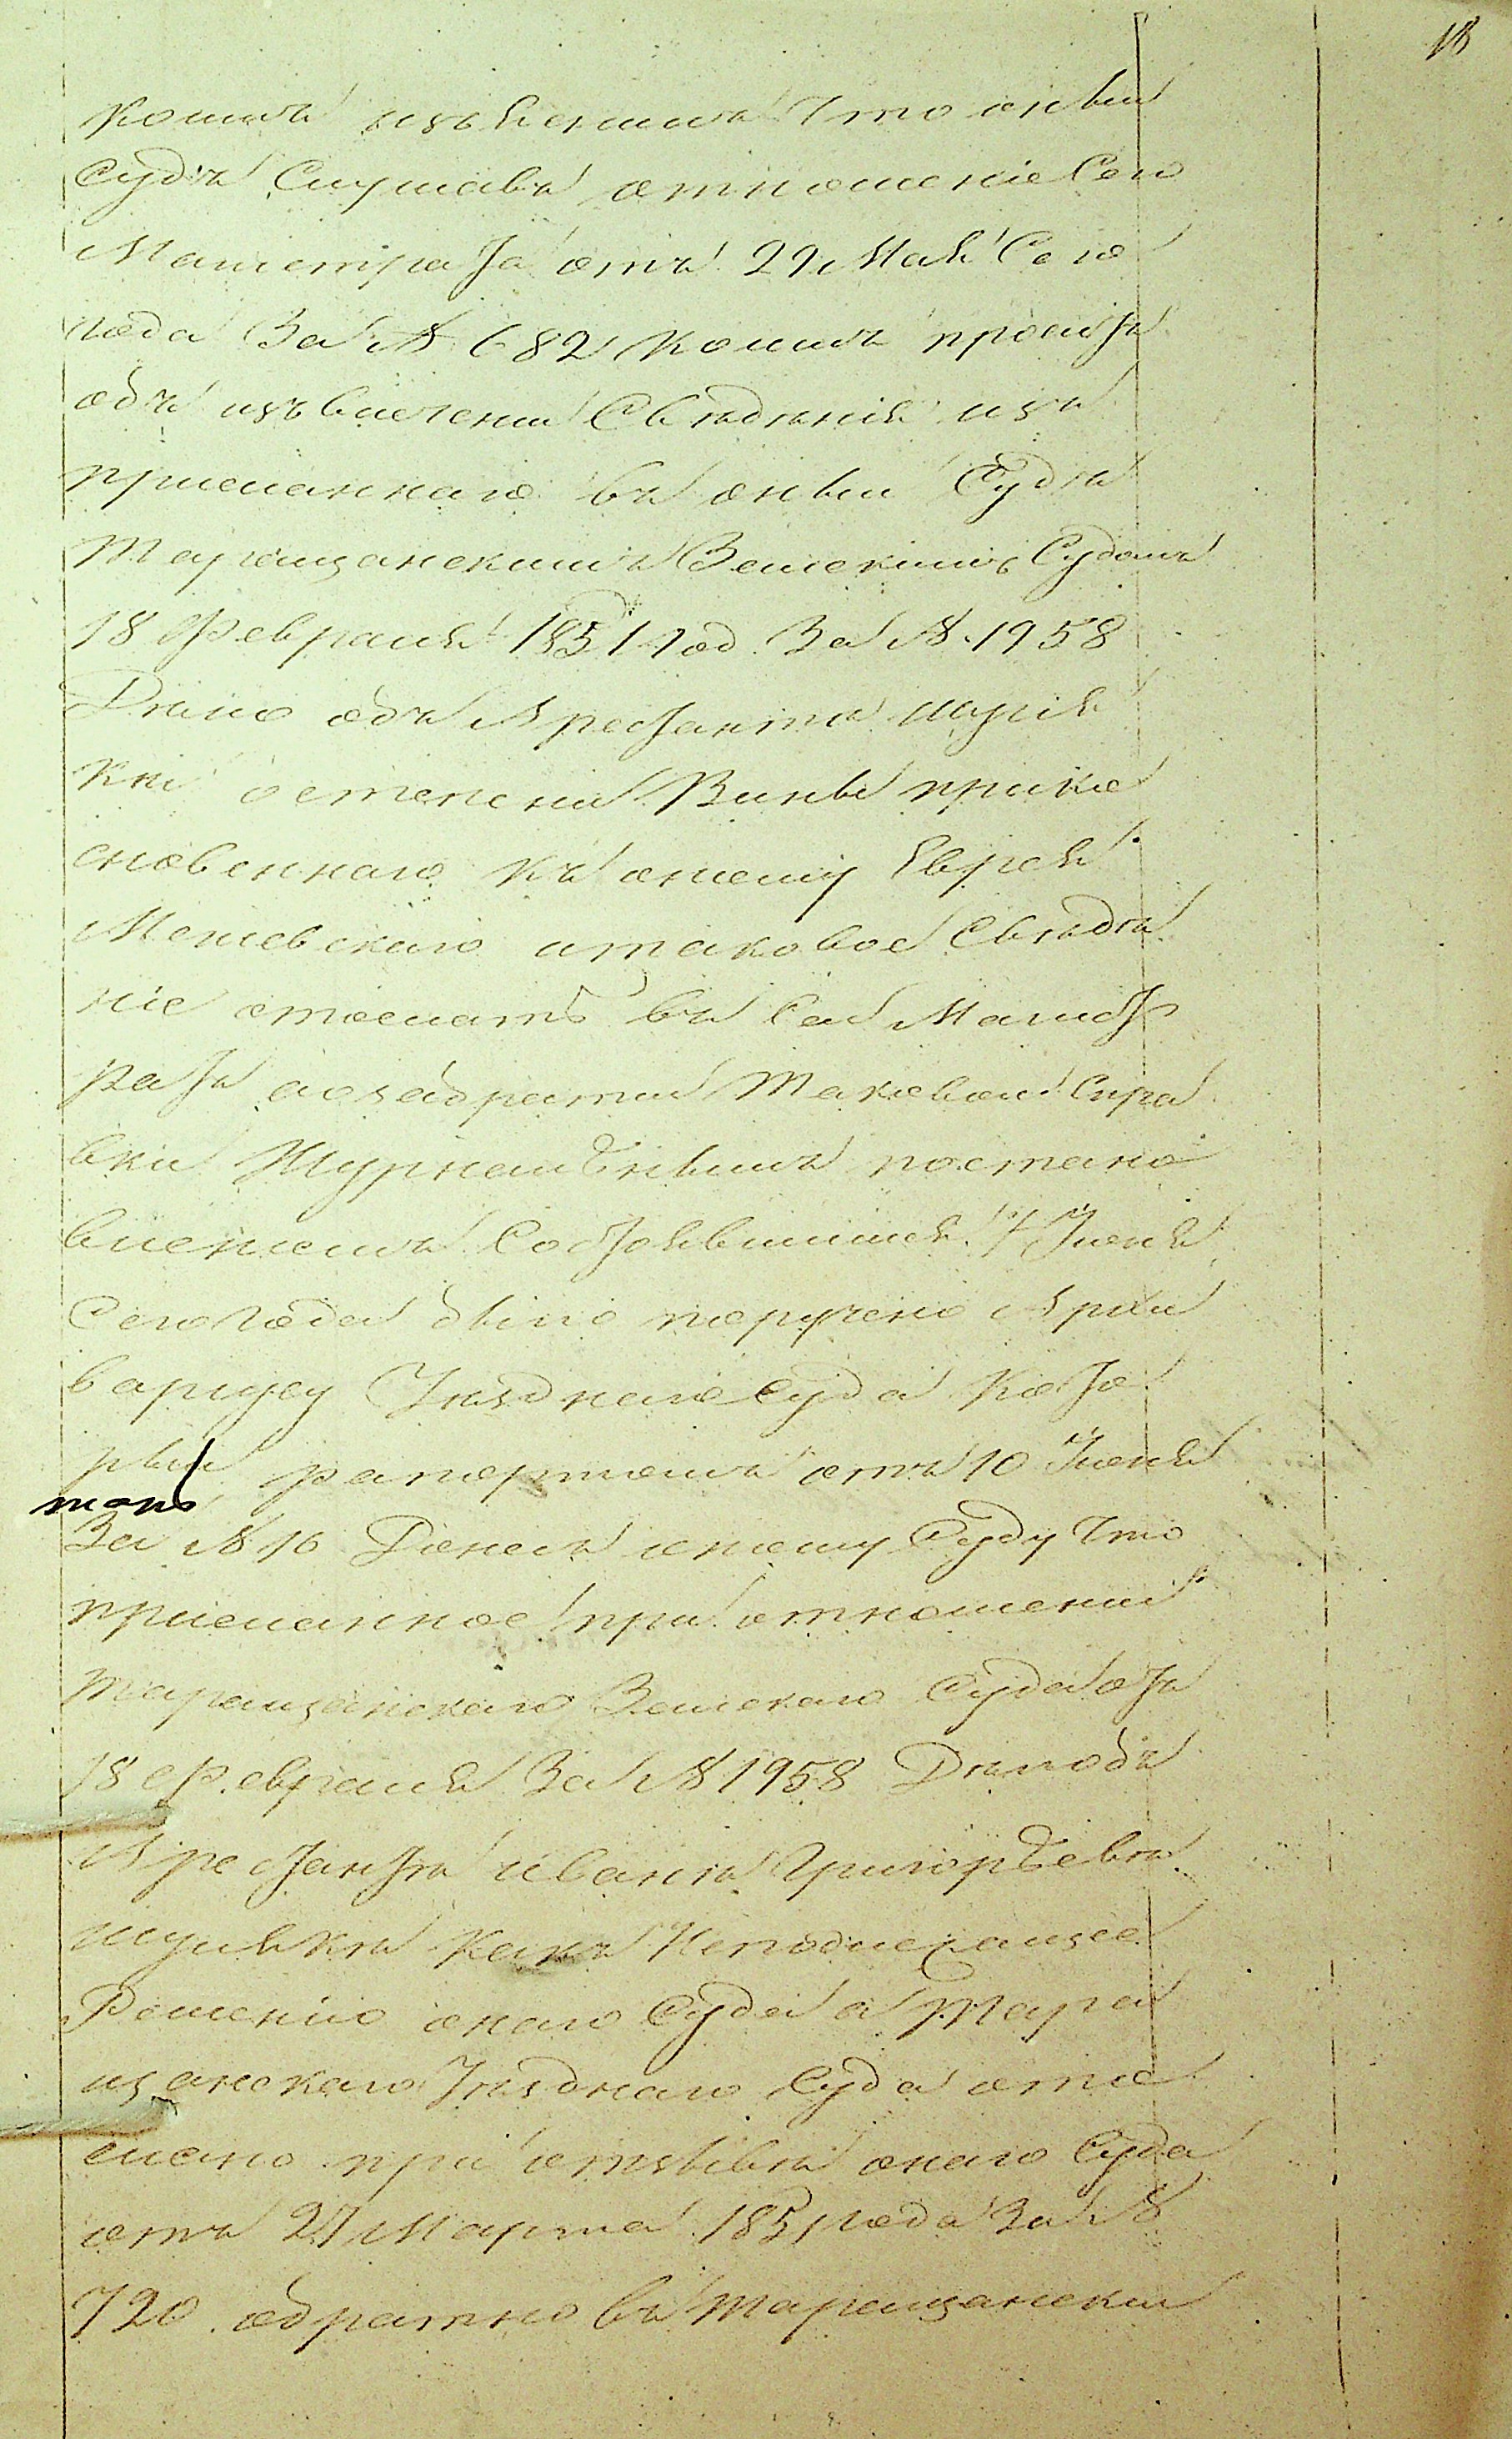 18
коимъ изъясняетъ что оный
Судъ Слушавъ отношеніе Сего
Магистрата отъ 29 Мая Сего
года За № 682 коимъ проситъ
объ извлеченіи Свѣдѣнія изъ
присланнаго въ оный Судъ
Таращанскимъ Земскимъ Судомъ
18 Февраля 1851 год. За № 1958
Дѣло объ Арестантѣ Шуля
кѣ о степени Вины прико
сновеннаго къ оному Еврея
Межевскаго и таковое Свѣдѣ
ніе отослать въ Сей Магист
ратъ а о забратіи Таковой Спра
вки Журнальнымъ постано
вленіемъ Состоявшимся 7 Іюня
Сего года было поручено Архи
варіусу Уѣзднаго Суда кото
рый рапортомъ отъ 10 Іюня
за № 16 Донесъ оному Суду что
присланное при отношеніи
Таращанскаго Земскаго Суда отъ
18 Февраля За № 1958 Дѣло объ
Арестантѣ Иванѣ Григорьевѣ
Шулякѣ какъ Неподлежащее
Рѣшенію онаго Суда а Тара
щанскаго Уѣзднаго Суда ото
слано при отзывѣ онаго Суда
отъ 27 Марта 1851 года За №
720 обратно въ Таращанскій